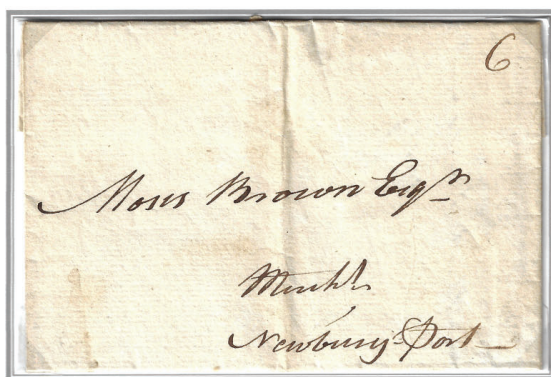 6
Moses Brown Esqr
Mercht
Newbury-Port